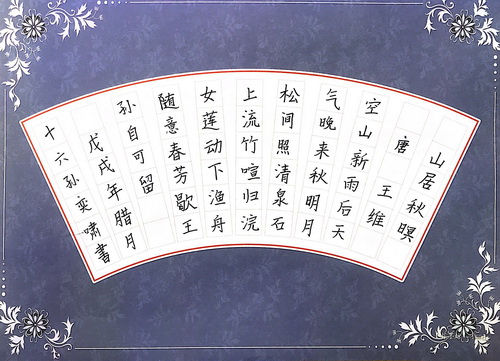 山居秋暝
唐 王维
空山新雨后天
气晚来秋明月
松间照清泉石
上流竹喧归浣
女莲动下渔舟
随意春芳歇王
孙自可留
戊戌年腊月
十六孙奕啸書